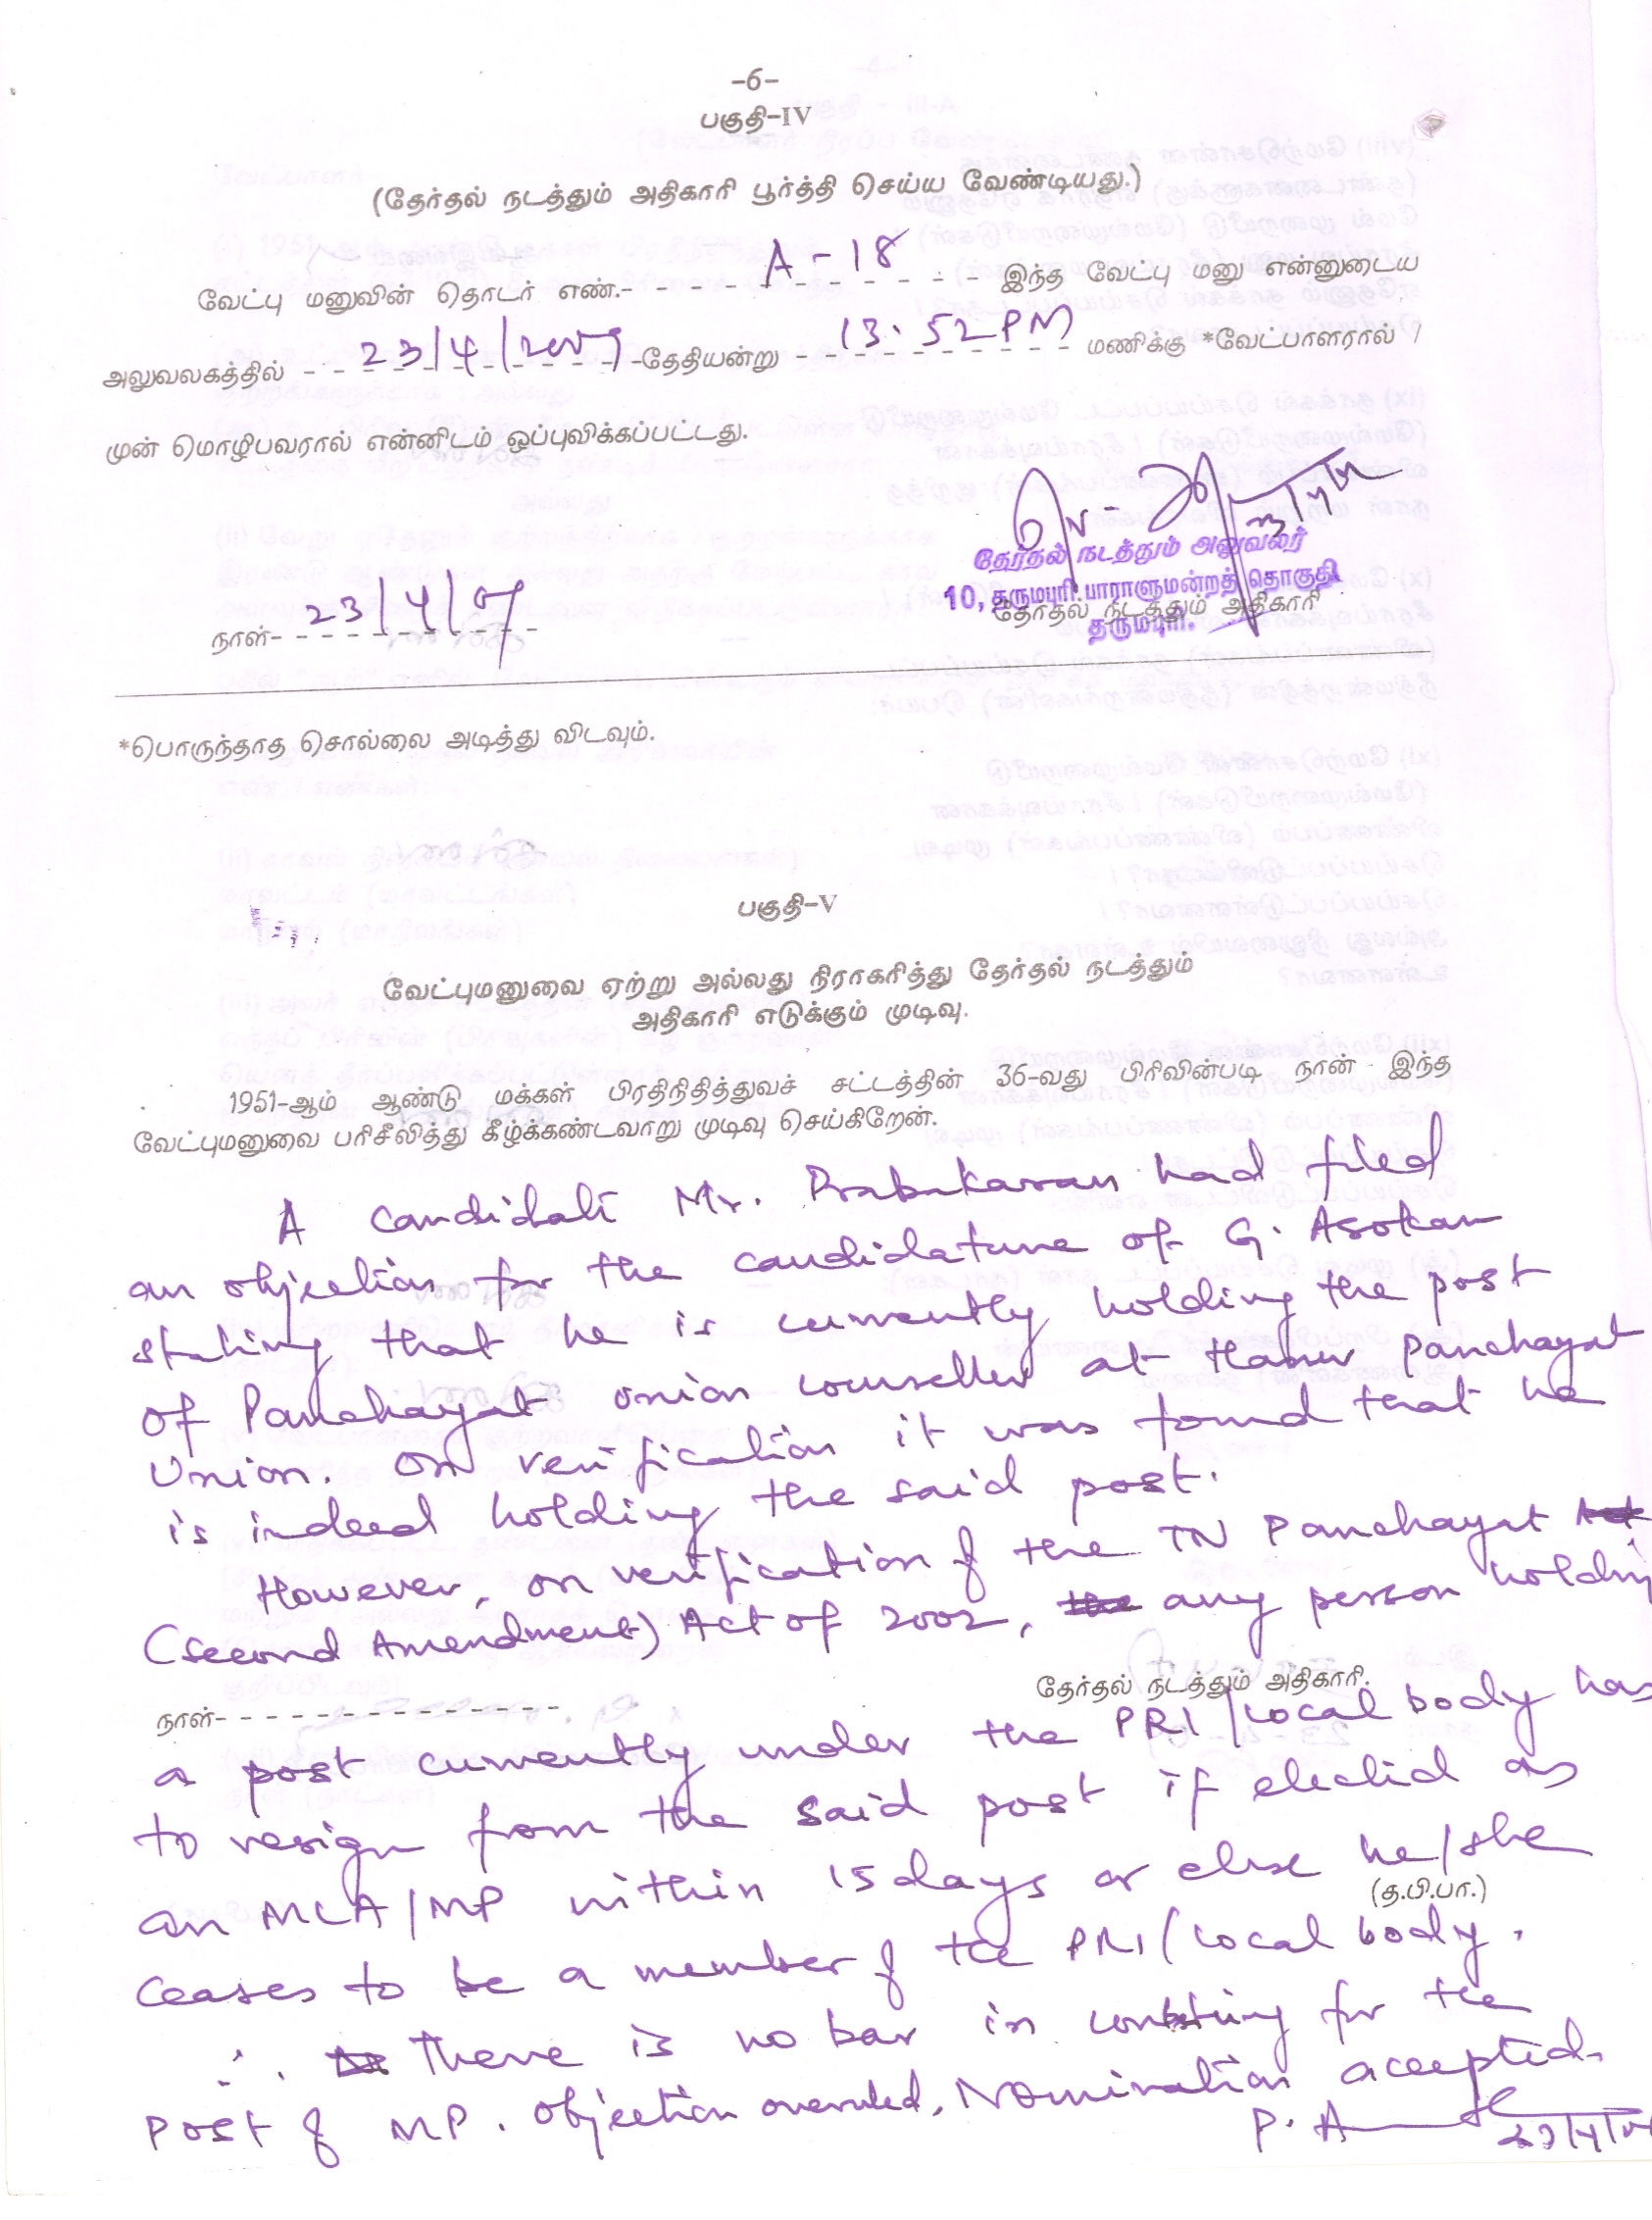 -6-
பகுதி-IV
(தேர்தல் நடத்தும் அதிகாரி பூர்த்தி செய்ய வேண்டியது.)
வேட்பு மனுவின் தொடர் எண்.- A - 18 இந்த வேட்பு மனு என்னுடைய
அலுவலகத்தில் 23/4/2009 தேதியன்று - 13.52PM மணிக்கு *வேட்பாளரால் /
முன் மொழிபவரால் என்னிடம் ஒப்புவிக்கப்பட்டது.
தேர்தல் நடத்தும் அலுவலர்
10, தருமபுரி பாராளுமன்றத் தொகுதி
தேர்தல் நடத்தும் அதிகாரி
தருமபுரி.
நாள்- 23/4/09
*பொருந்தாத சொல்லை அடித்து விடவும்.
பகுதி-V
வேட்புமனுவை ஏற்று அல்லது நிராகரித்து தேர்தல் நடத்தும்
அதிகாரி எடுக்கும் முடிவு.
1951-ஆம் ஆண்டு மக்கள் பிரதிநிதித்துவச் சட்டத்தின் 36-வது பிரிவின்படி நான் இந்த
வேட்புமனுவை பரிசீலித்து கீழ்க்கண்டவாறு முடிவு செய்கிறேன்.
A candidate Mr. Prabakaran had filed
an objection for the candidature of G. Asokan
stating that he is currently holding the post
of Panchayat Union counseller at Harur Panchayat
Union. On verification it was found that he
is indeed holding the said post.
However, on verification of the TN Panchayat
(Second Amendment) Act of 2002, any person holding
தேர்தல் நடத்தும் அதிகாரி.
நாள்-
a post currently under the PRI/Local body has
to resign from the said post if elected as
an MLA/MP within 15 days or else he/she
(த.பி.பா.)
ceases to be a member of the PRI/Local body.
∴ There is no bar in contesting for the
post of MP. Objection overruled, Nomination accepted.
P. A